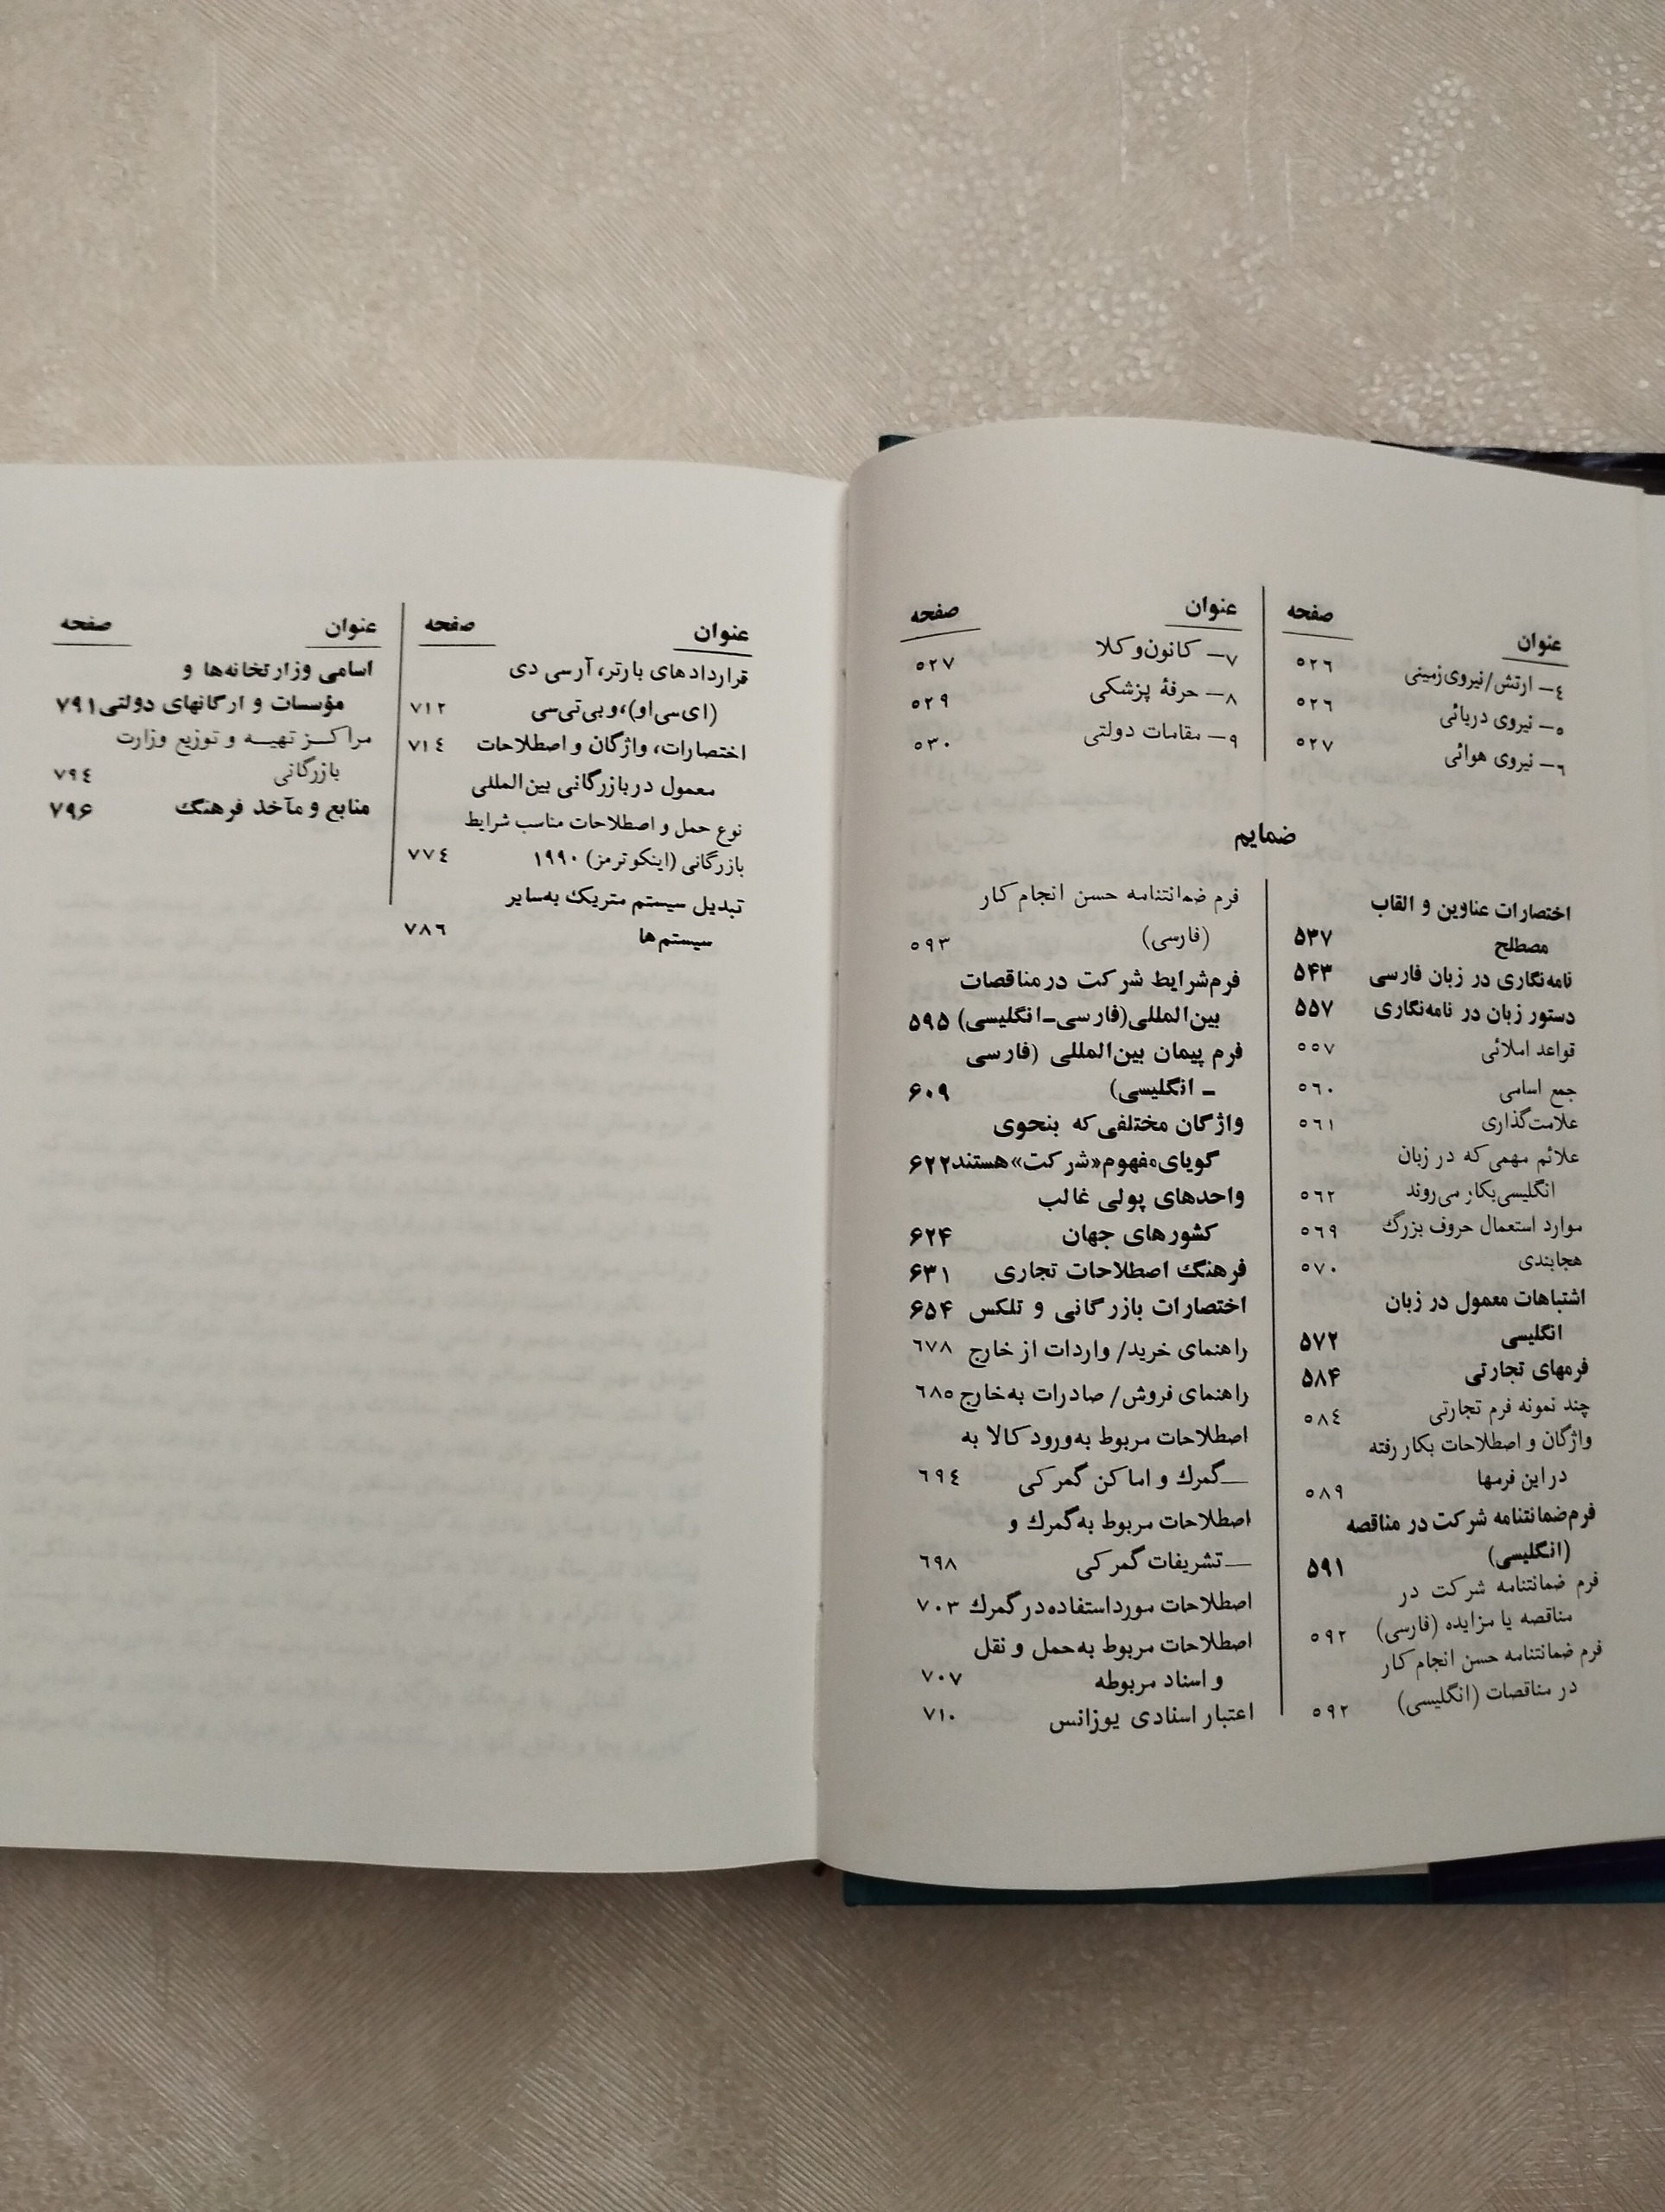 عنوان صفحه
٤– ارتش/نیروی‌زمینی ٥٢٦
٥– نیروی دریائی ٥٢٦
٦– نیروی هوائی ٥٢٧
عنوان صفحه
٧– کانون‌وکلا ٥٢٧
٨– حرفهٔ پزشکی ٥٢٩
٩– مقامات دولتی ٥٣٠
ضمایم
اختصارات عناوین و القاب
مصطلح ۵۳۷
نامه‌نگاری در زبان فارسی ۵۴۳
دستور زبان در نامه‌نگاری ۵۵۷
قواعد املائی ٥٥٧
جمع اسامی ٥٦٠
علامت‌گذاری ٥٦١
علائم مهمی‌که در زبان
انگلیسی‌بکار می‌روند ٥٦٢
موارد استعمال حروف بزرگ ٥٦٩
هجابندی ٥٧٠
اشتباهات معمول در زبان
انگلیسی ۵۷۲
فرمهای تجارتی ۵۸۴
چند نمونه فرم تجارتی ٥٨٤
واژگان و اصطلاحات بکار رفته
در این فرمها ٥٨٩
فرم‌ضمانتنامه شرکت در مناقصه
(انگلیسی) ۵۹۱
فرم ضمانتنامه شرکت در
مناقصه یا مزایده (فارسی) ٥٩٢
فرم ضمانتنامه حسن انجام کار
در مناقصات (انگلیسی) ٥٩٢
فرم ضمانتنامه حسن انجام کار
(فارسی) ٥٩٣
فرم‌شرایط شرکت در مناقصات
بین‌المللی(فارسی–انگلیسی) ۵۹۵
فرم پیمان بین‌المللی (فارسی
– انگلیسی) ۶۰۹
واژگان مختلفی‌که بنحوی
گویای‌مفهوم«شرکت»هستند ۶۲۲
واحدهای پولی غالب
کشورهای جهان ۶۲۴
فرهنگ اصطلاحات تجاری ۶۳۱
اختصارات بازرگانی و تلکس ۶۵۴
راهنمای خرید/ واردات از خارج ٦٧٨
راهنمای فروش/ صادرات به‌خارج ٦٨٥
اصطلاحات مربوط به‌ورود کالا به
—گمرك و اماکن گمرکی ٦٩٤
اصطلاحات مربوط به‌گمرك و
—تشریفات گمرکی ٦٩٨
اصطلاحات مورد استفاده در گمرك ٧٠٣
اصطلاحات مربوط به‌حمل و نقل
و اسناد مربوطه ٧٠٧
اعتبار اسنادی یوزانس ٧١٠
عنوان صفحه
قراردادهای بارتر، آرسی دی
(ای‌سی‌او)،و بی‌تی‌سی ٧١٢
اختصارات، واژگان و اصطلاحات ٧١٤
معمول در بازرگانی بین‌المللی
نوع حمل و اصطلاحات مناسب شرایط
بازرگانی (اینکوترمز) ١٩٩٠ ٧٧٤
تبدیل سیستم متریک به‌سایر
سیستم‌ها ٧٨٦
عنوان صفحه
اسامی وزارتخانه‌ها و
مؤسسات و ارگانهای دولتی ۷۹۱
مراکــز تهیــه و توزیع وزارت
بازرگانی ٧٩٤
منابع و مآخذ فرهنگ ۷۹۶